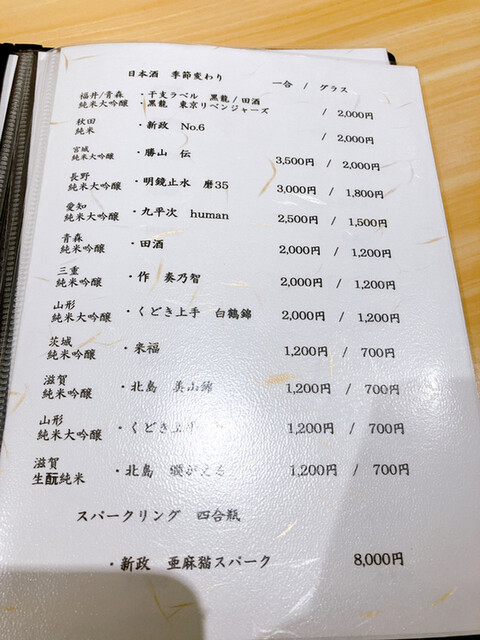 日本酒 季節変わり 一合 / グラス
福井/青森 ・干支ラベル 黒龍/田酒
純米大吟醸 ・黒龍 東京リベンジャーズ / 2,000円
秋田
純米 ・新政 No.6 / 2,000円
宮城
純米大吟醸 ・勝山 伝 3,500円 / 2,000円
長野
純米大吟醸 ・明鏡止水 磨35 3,000円 / 1,800円
愛知
純米大吟醸 ・九平次 human 2,500円 / 1,500円
青森
純米吟醸 ・田酒 2,000円 / 1,200円
三重
純米吟醸 ・作 奏乃智 2,000円 / 1,200円
山形
純米大吟醸 ・くどき上手 白鶴錦 2,000円 / 1,200円
茨城
純米吟醸 ・来福 1,200円 / 700円
滋賀
純米吟醸 ・北島 美山錦 1,200円 / 700円
山形
純米大吟醸 ・くどき上手 1,200円 / 700円
滋賀
生酛純米 ・北島 1,200円 / 700円
スパークリング 四合瓶
・新政 亜麻猫スパーク 8,000円